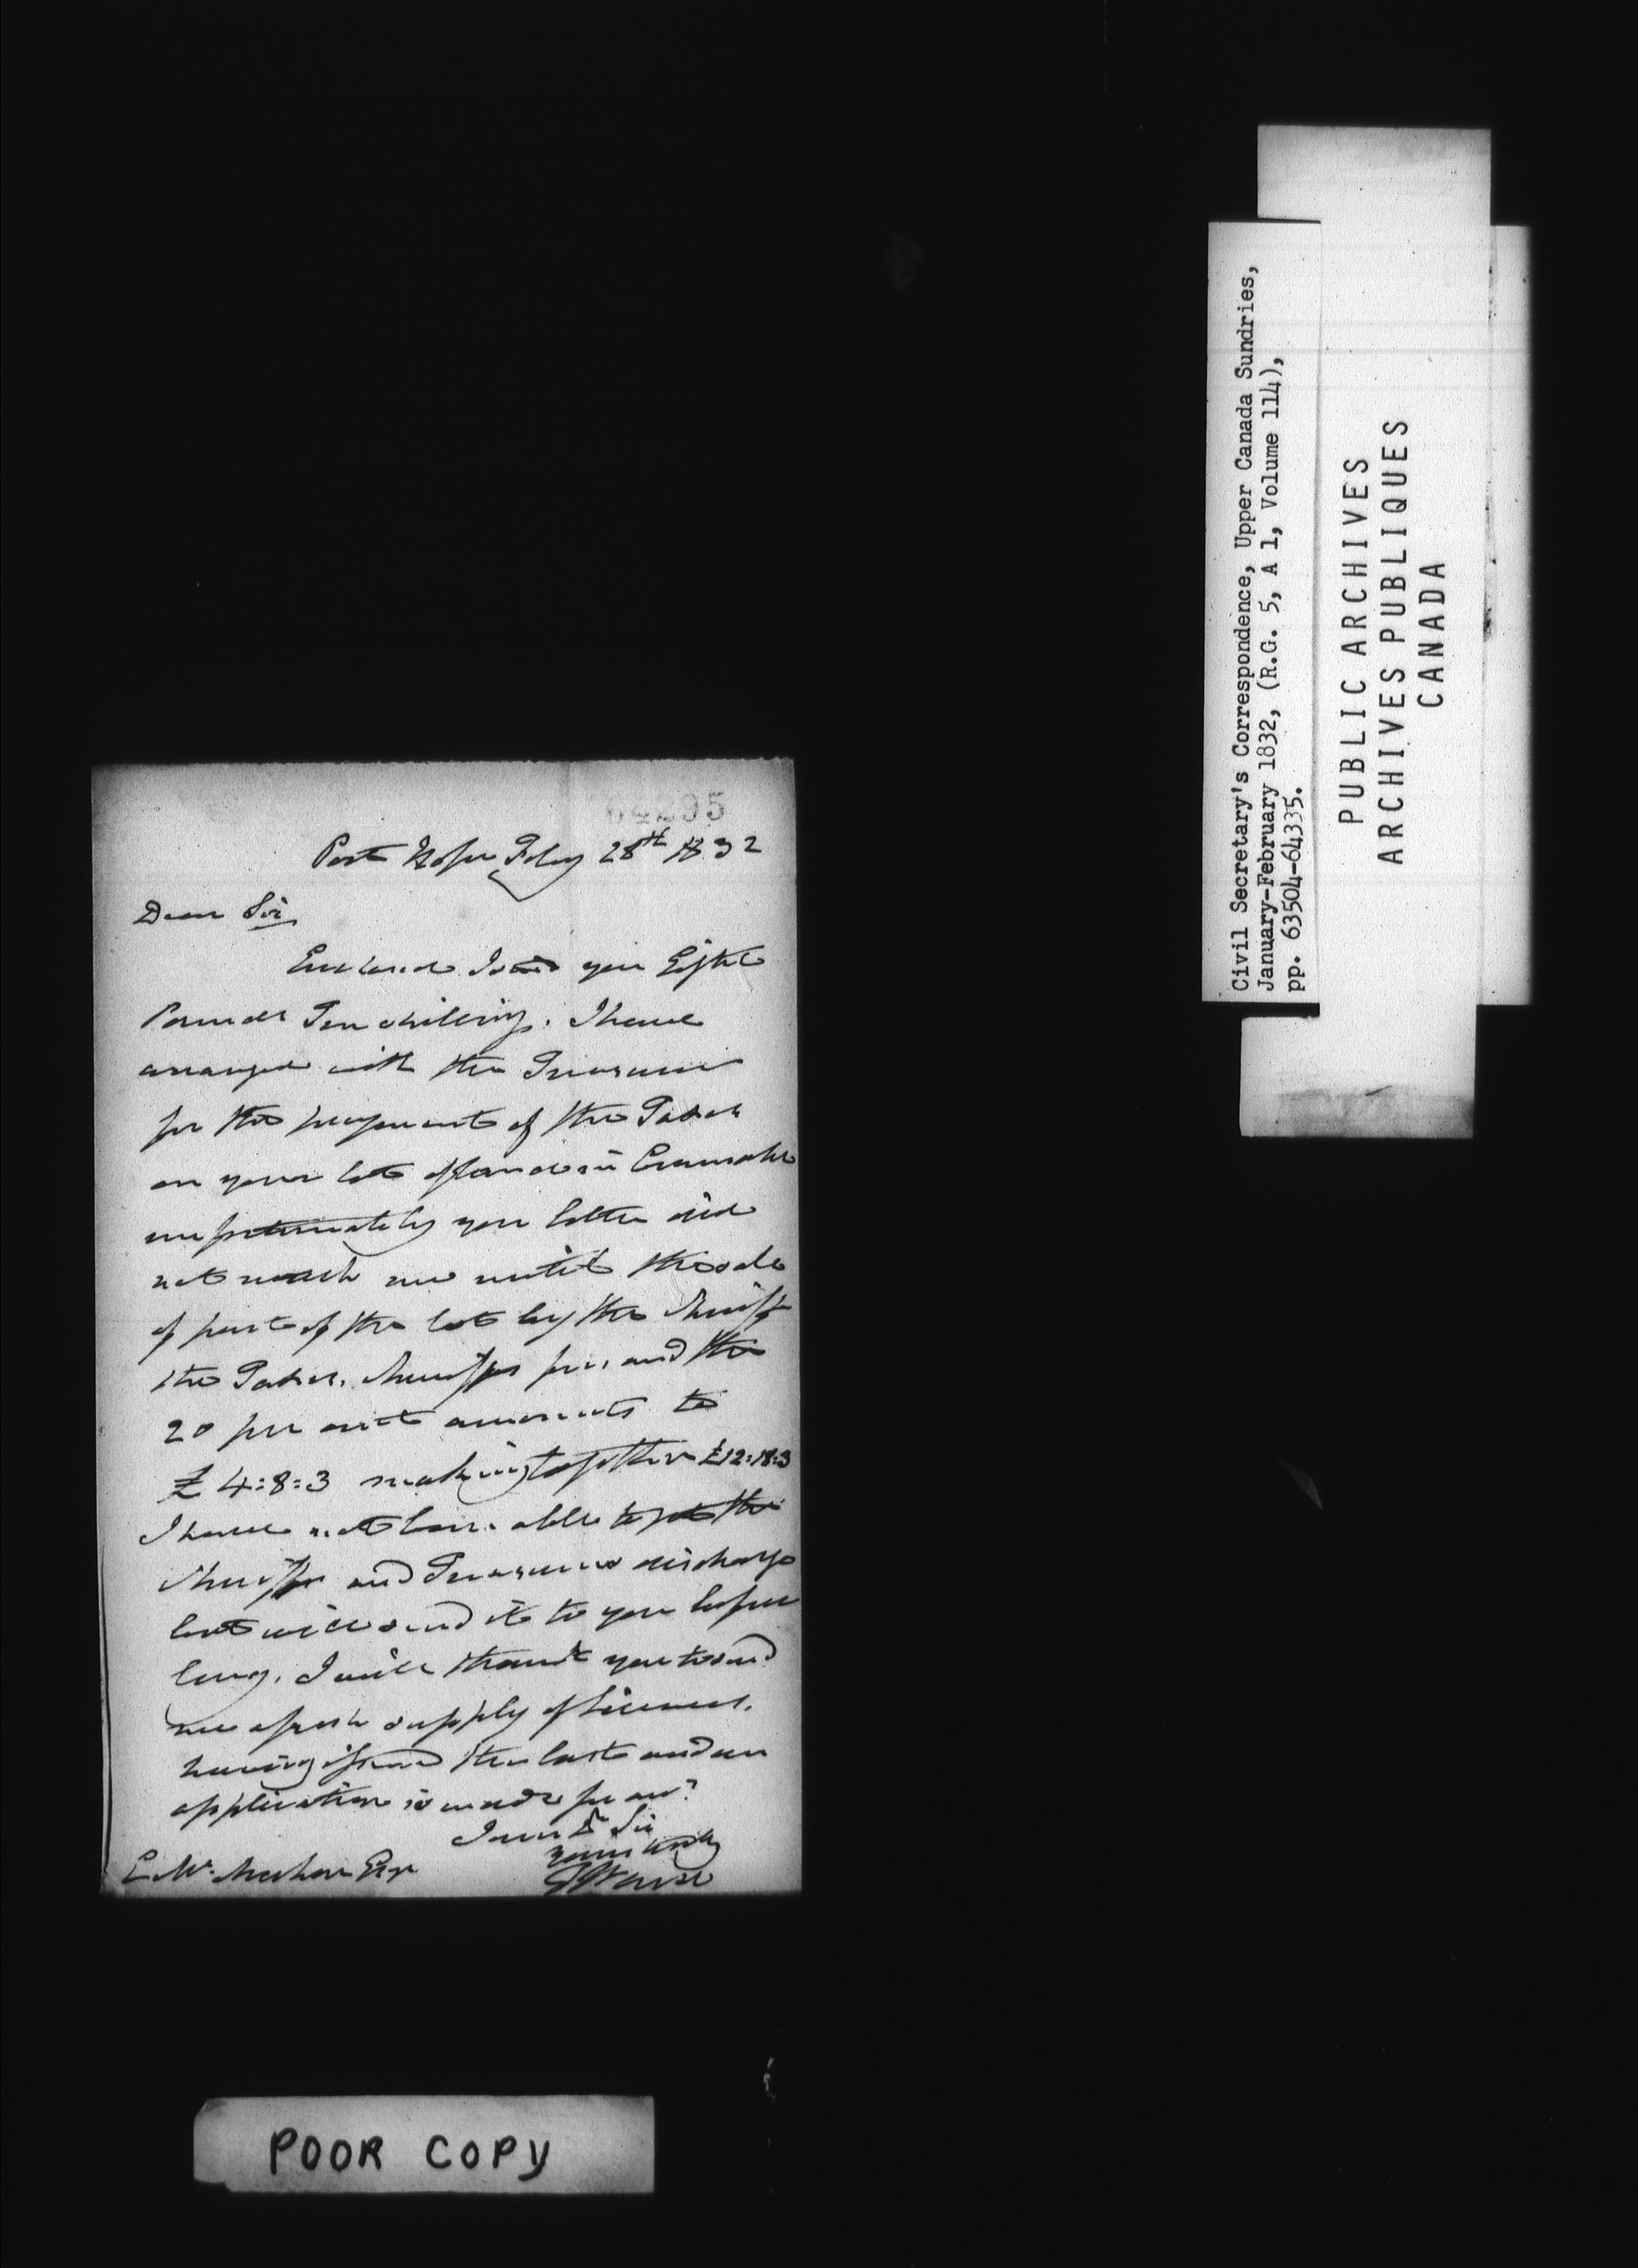 64295
Port Hope Feby 28th 1832
Dear Sir
Enclosed I send you Eight
Pounds Ten shillings. I have
arranged with the Treasurer
for the payment of the Taxes
on your lot of land in Cramahe
unfortunately your letter did
not reach me until the sale
of part of the lot by the Sheriff
the Taxes, Sheriffs fees and the
20 per cent amounts to
£ 4:8:3 making together £12:18:3
I have not been able to get the
Sheriffs and Treasurers discharge
but will send it to you before
long. I will thank you to send
me a fresh supply of Licences,
having issued the last and an
application is made for
I am Dr Sir
Yours truly
E Mc Mahon Esqr
Civil Secretary's Correspondence, Upper Canada Sundries,
January-February 1832, (R.G. 5, A 1, Volume 114),
pp. 63504-64335.
PUBLIC ARCHIVES
ARCHIVES PUBLIQUES
CANADA
POOR COPY